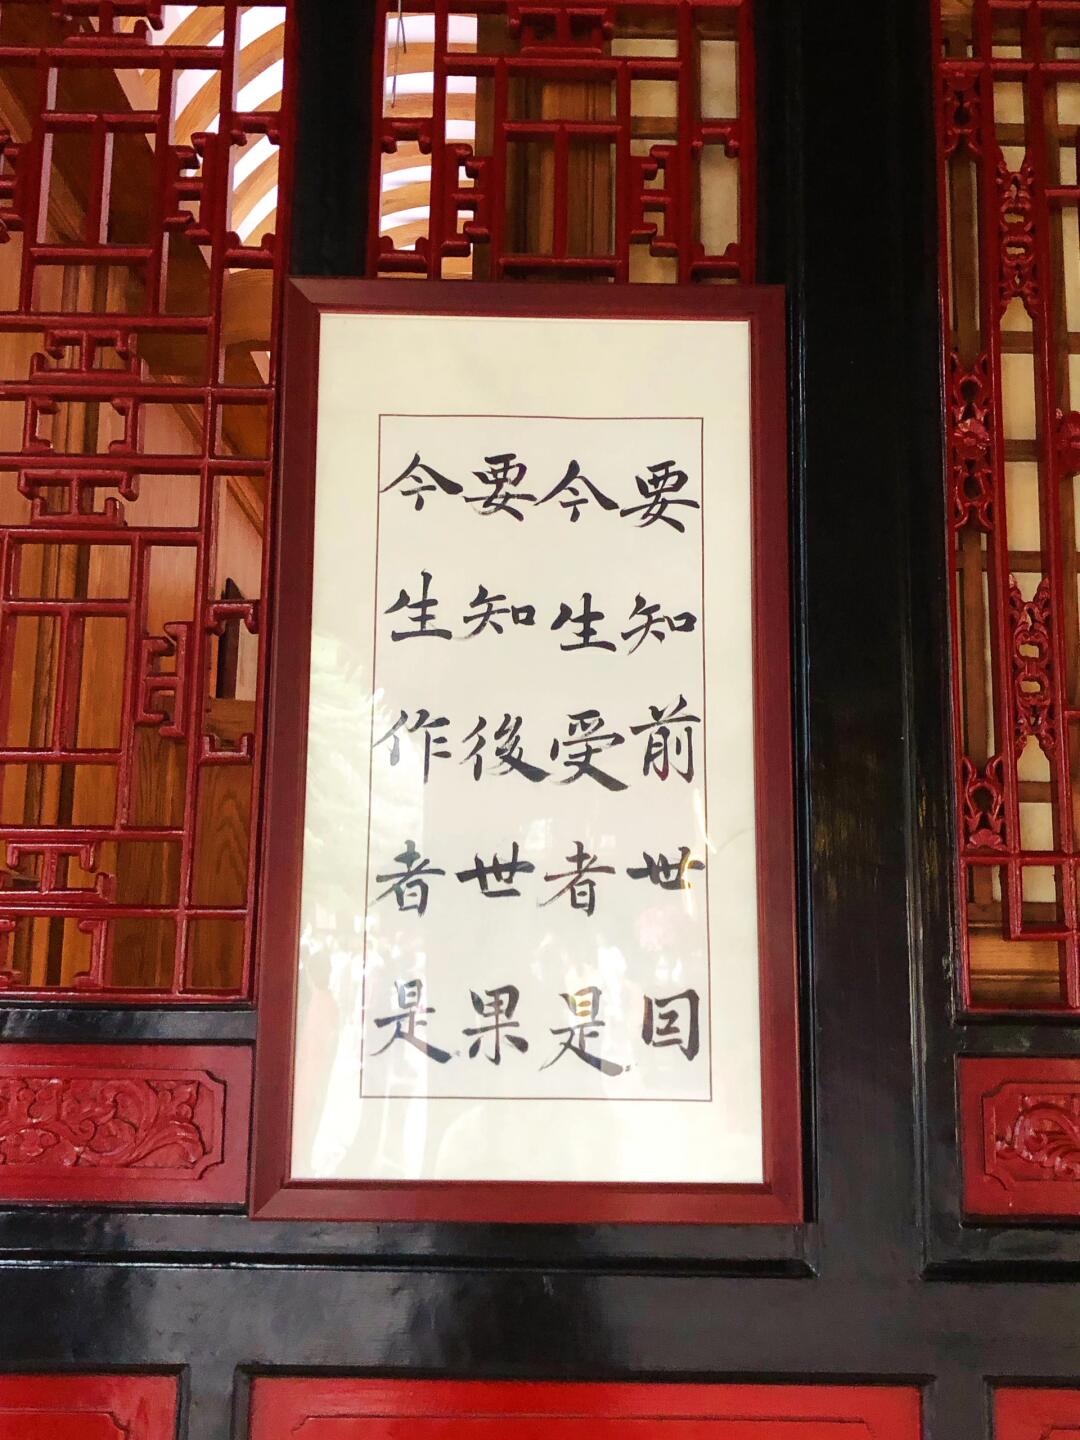 要知前世囙
今生受者是
要知後世果
今生作者是